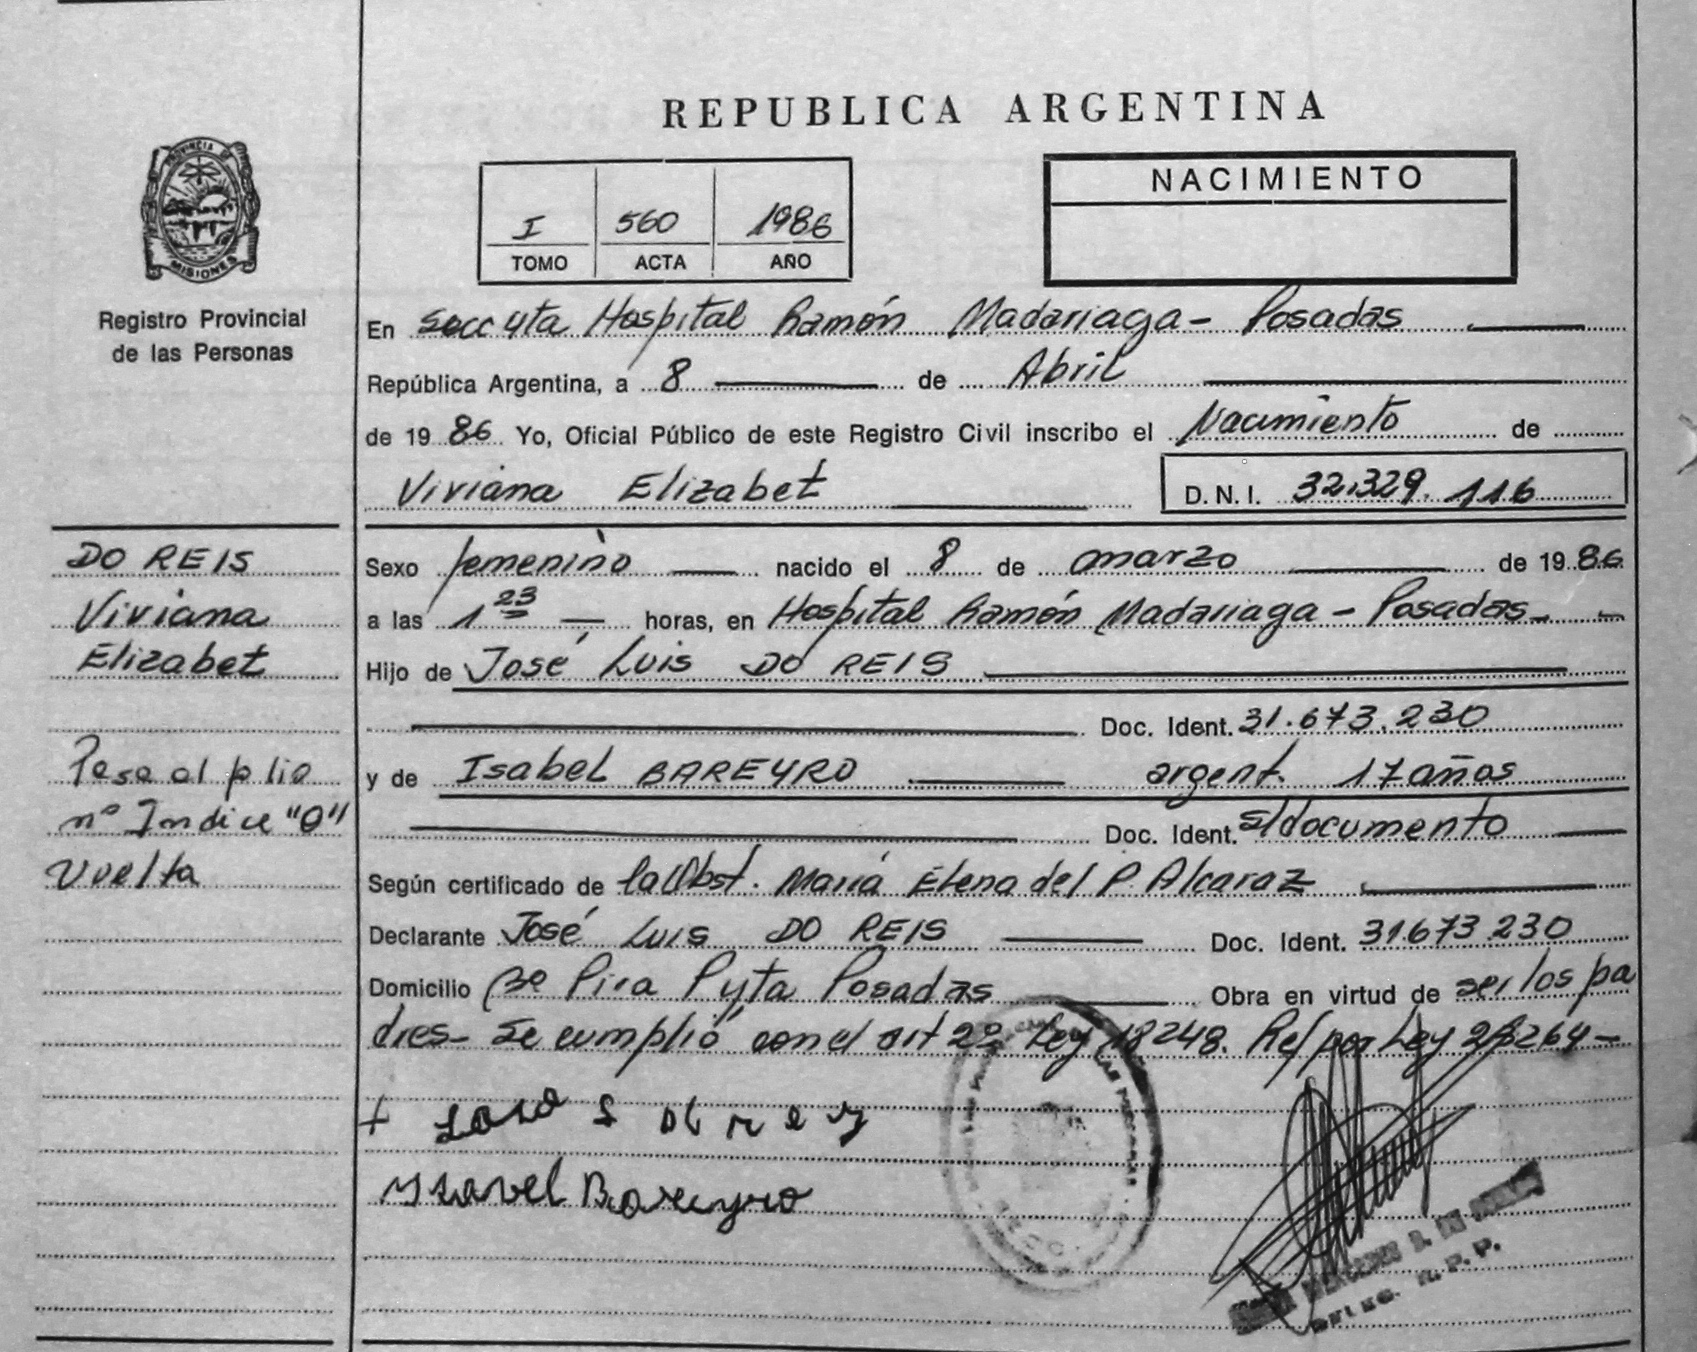 REPUBLICA ARGENTINA
PROVINCIA DE
MISIONES
Registro Provincial
de las Personas
I 560 1986
TOMO ACTA AÑO
NACIMIENTO
En Secc 4ta Hospital Ramón Madariaga - Posadas
República Argentina, a 8 de Abril
de 19 86 Yo, Oficial Público de este Registro Civil inscribo el Nacimiento de
Viviana Elizabet D.N.I. 32.329.116
Sexo femenino nacido el 8 de marzo de 19 86
a las 1 23 horas, en Hospital Ramón Madariaga - Posadas -
Hijo de José Luis DO REIS
Doc. Ident. 31.673.230
y de Isabel BAREYRO argent. 17 años
Doc. Ident. s/documento
Según certificado de la Obst. María Elena del P. Alcaraz
Declarante José Luis DO REIS Doc. Ident. 31.673.230
Domicilio Pira Pyta Posadas Obra en virtud de ser los pa
dres - Se cumplió con el art 2º Ley 18248. Ref por Ley 23264 -
Ysavel Bareyro
DELEG. R. P. P.
DO REIS
Viviana
Elizabet
Pasa al plio
nº Indice "0"
Vuelta